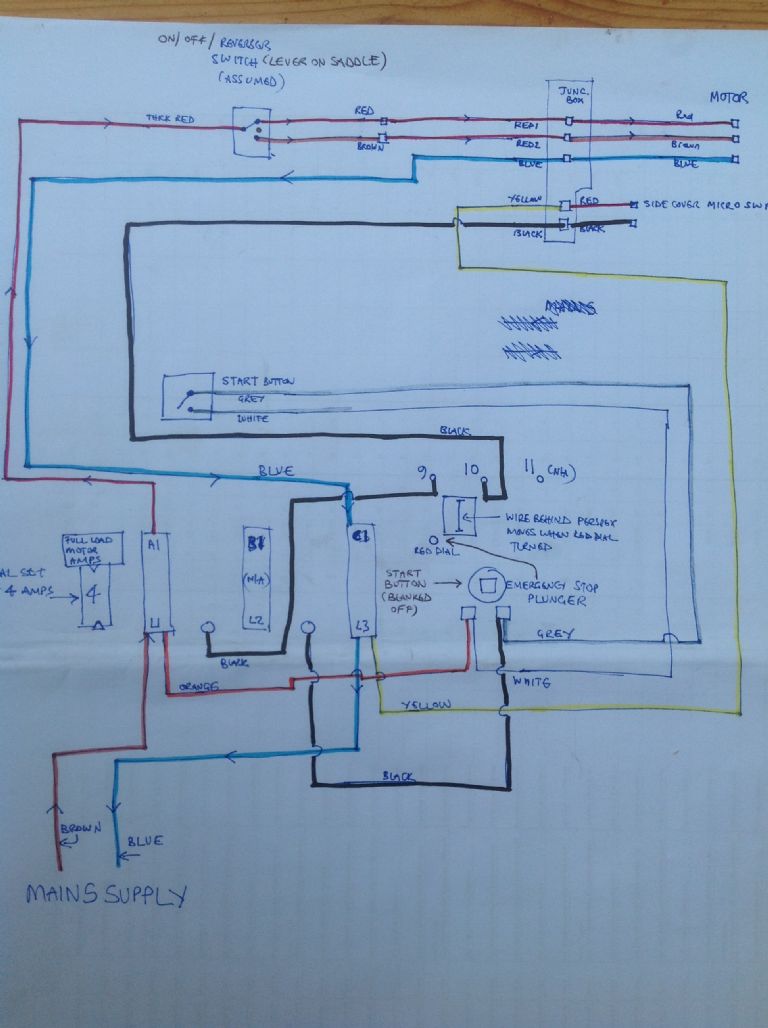 ON/OFF/REVERSER
SWITCH (LEVER ON SADDLE)
(ASSUMED)
JUNC.
BOX
MOTOR
THICK RED
RED
RED1
Red
BROWN
RED2
Brown
BLUE
BLUE
YELLOW
RED
SIDE COVER MICRO SW
BLACK
BLACK
START BUTTON
GREY
WHITE
BLACK
BLUE
9
10
11 (N/A)
WIRE BEHIND PERSPEX
MOVES WHEN RED DIAL
TURNED
RED DIAL
FULL LOAD
MOTOR
AMPS
AL SET
4 AMPS
4
A1
L1
B1
(N/A)
L2
C1
L3
START
BUTTON
(BLANKED
OFF)
EMERGENCY STOP
PLUNGER
GREY
BLACK
ORANGE
WHITE
YELLOW
BLACK
BROWN
BLUE
MAINS SUPPLY